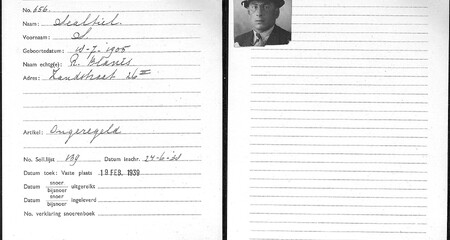 No. 656.
Naam: Sealtiel.
Voornaam: S.
Geboortedatum: 10-7-1905
Naam echtg(e): R. Glanis
Adres: Zandstraat 26 II
Artikel: Ongeregeld
No. Soll.lijst Datum inschr. 24-6-21
Datum toek: Vaste plaats 19 FEB. 1939
Datum snoer bijsnoer uitgereikt
Datum snoer bijsnoer ingeleverd
No. verklaring snoerenboek